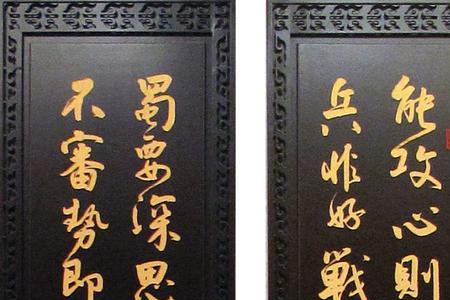 能攻心則
兵非好戰
蜀要深思
不審勢即